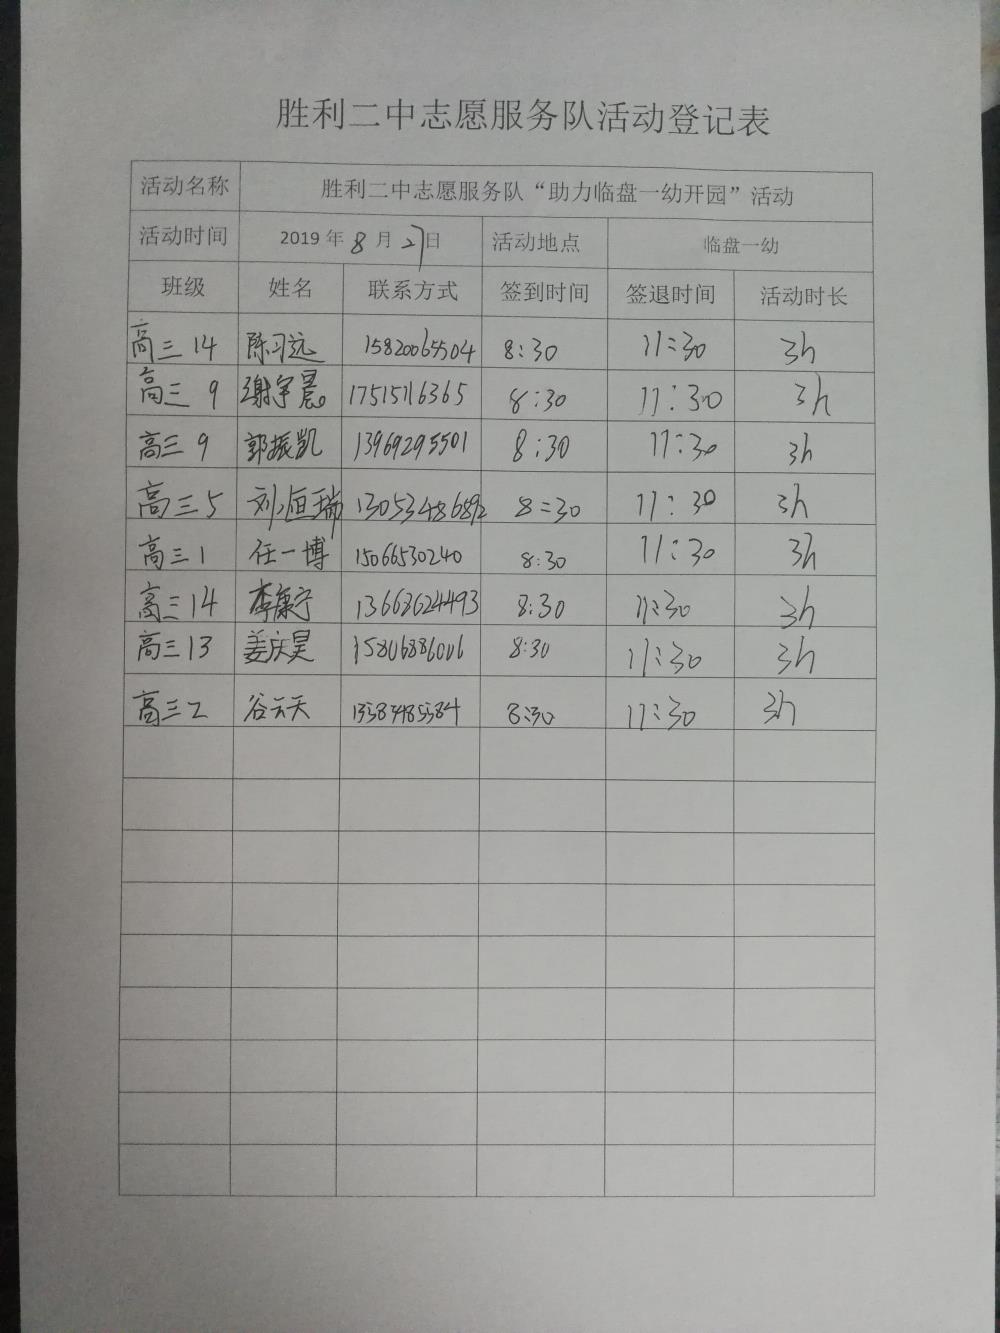 胜利二中志愿服务队活动登记表
活动名称 胜利二中志愿服务队“助力临盘一幼开园”活动
活动时间 2019年8月27日 活动地点 临盘一幼
班级 姓名 联系方式 签到时间 签退时间 活动时长
高三14 陈习远 15820065504 8:30 11:30 3h
高三9 谢宇晨 17515116365 8:30 11:30 3h
高三9 郭振凯 13969295501 8:30 11:30 3h
高三5 刘恒瑞 13053486892 8:30 11:30 3h
高三1 任一博 15066530240 8:30 11:30 3h
高三14 李康宁 13668624493 8:30 11:30 3h
高三13 姜庆昊 15806886006 8:30 11:30 3h
高三2 谷云天 8:30 11:30 3h